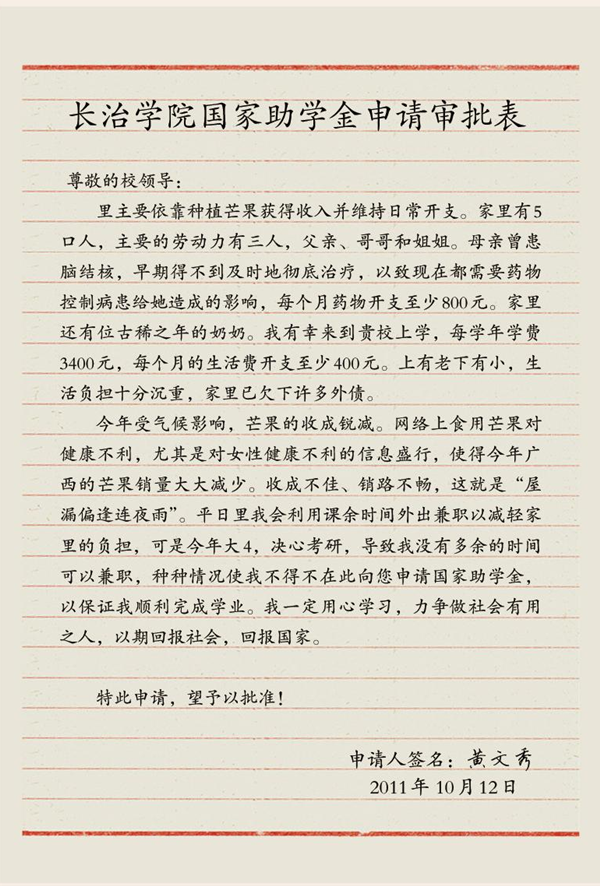 长治学院国家助学金申请审批表
尊敬的校领导：
里主要依靠种植芒果获得收入并维持日常开支。家里有5
口人，主要的劳动力有三人，父亲、哥哥和姐姐。母亲曾患
脑结核，早期得不到及时地彻底治疗，以致现在都需要药物
控制病患给她造成的影响，每个月药物开支至少800元。家里
还有位古稀之年的奶奶。我有幸来到贵校上学，每学年学费
3400元，每个月的生活费开支至少400元。上有老下有小，生
活负担十分沉重，家里已欠下许多外债。
今年受气候影响，芒果的收成锐减。网络上食用芒果对
健康不利，尤其是对女性健康不利的信息盛行，使得今年广
西的芒果销量大大减少。收成不佳、销路不畅，这就是“屋
漏偏逢连夜雨”。平日里我会利用课余时间外出兼职以减轻家
里的负担，可是今年大4，决心考研，导致我没有多余的时间
可以兼职，种种情况使我不得不在此向您申请国家助学金，
以保证我顺利完成学业。我一定用心学习，力争做社会有用
之人，以期回报社会，回报国家。
特此申请，望予以批准！
申请人签名：黄文秀
2011年10月12日